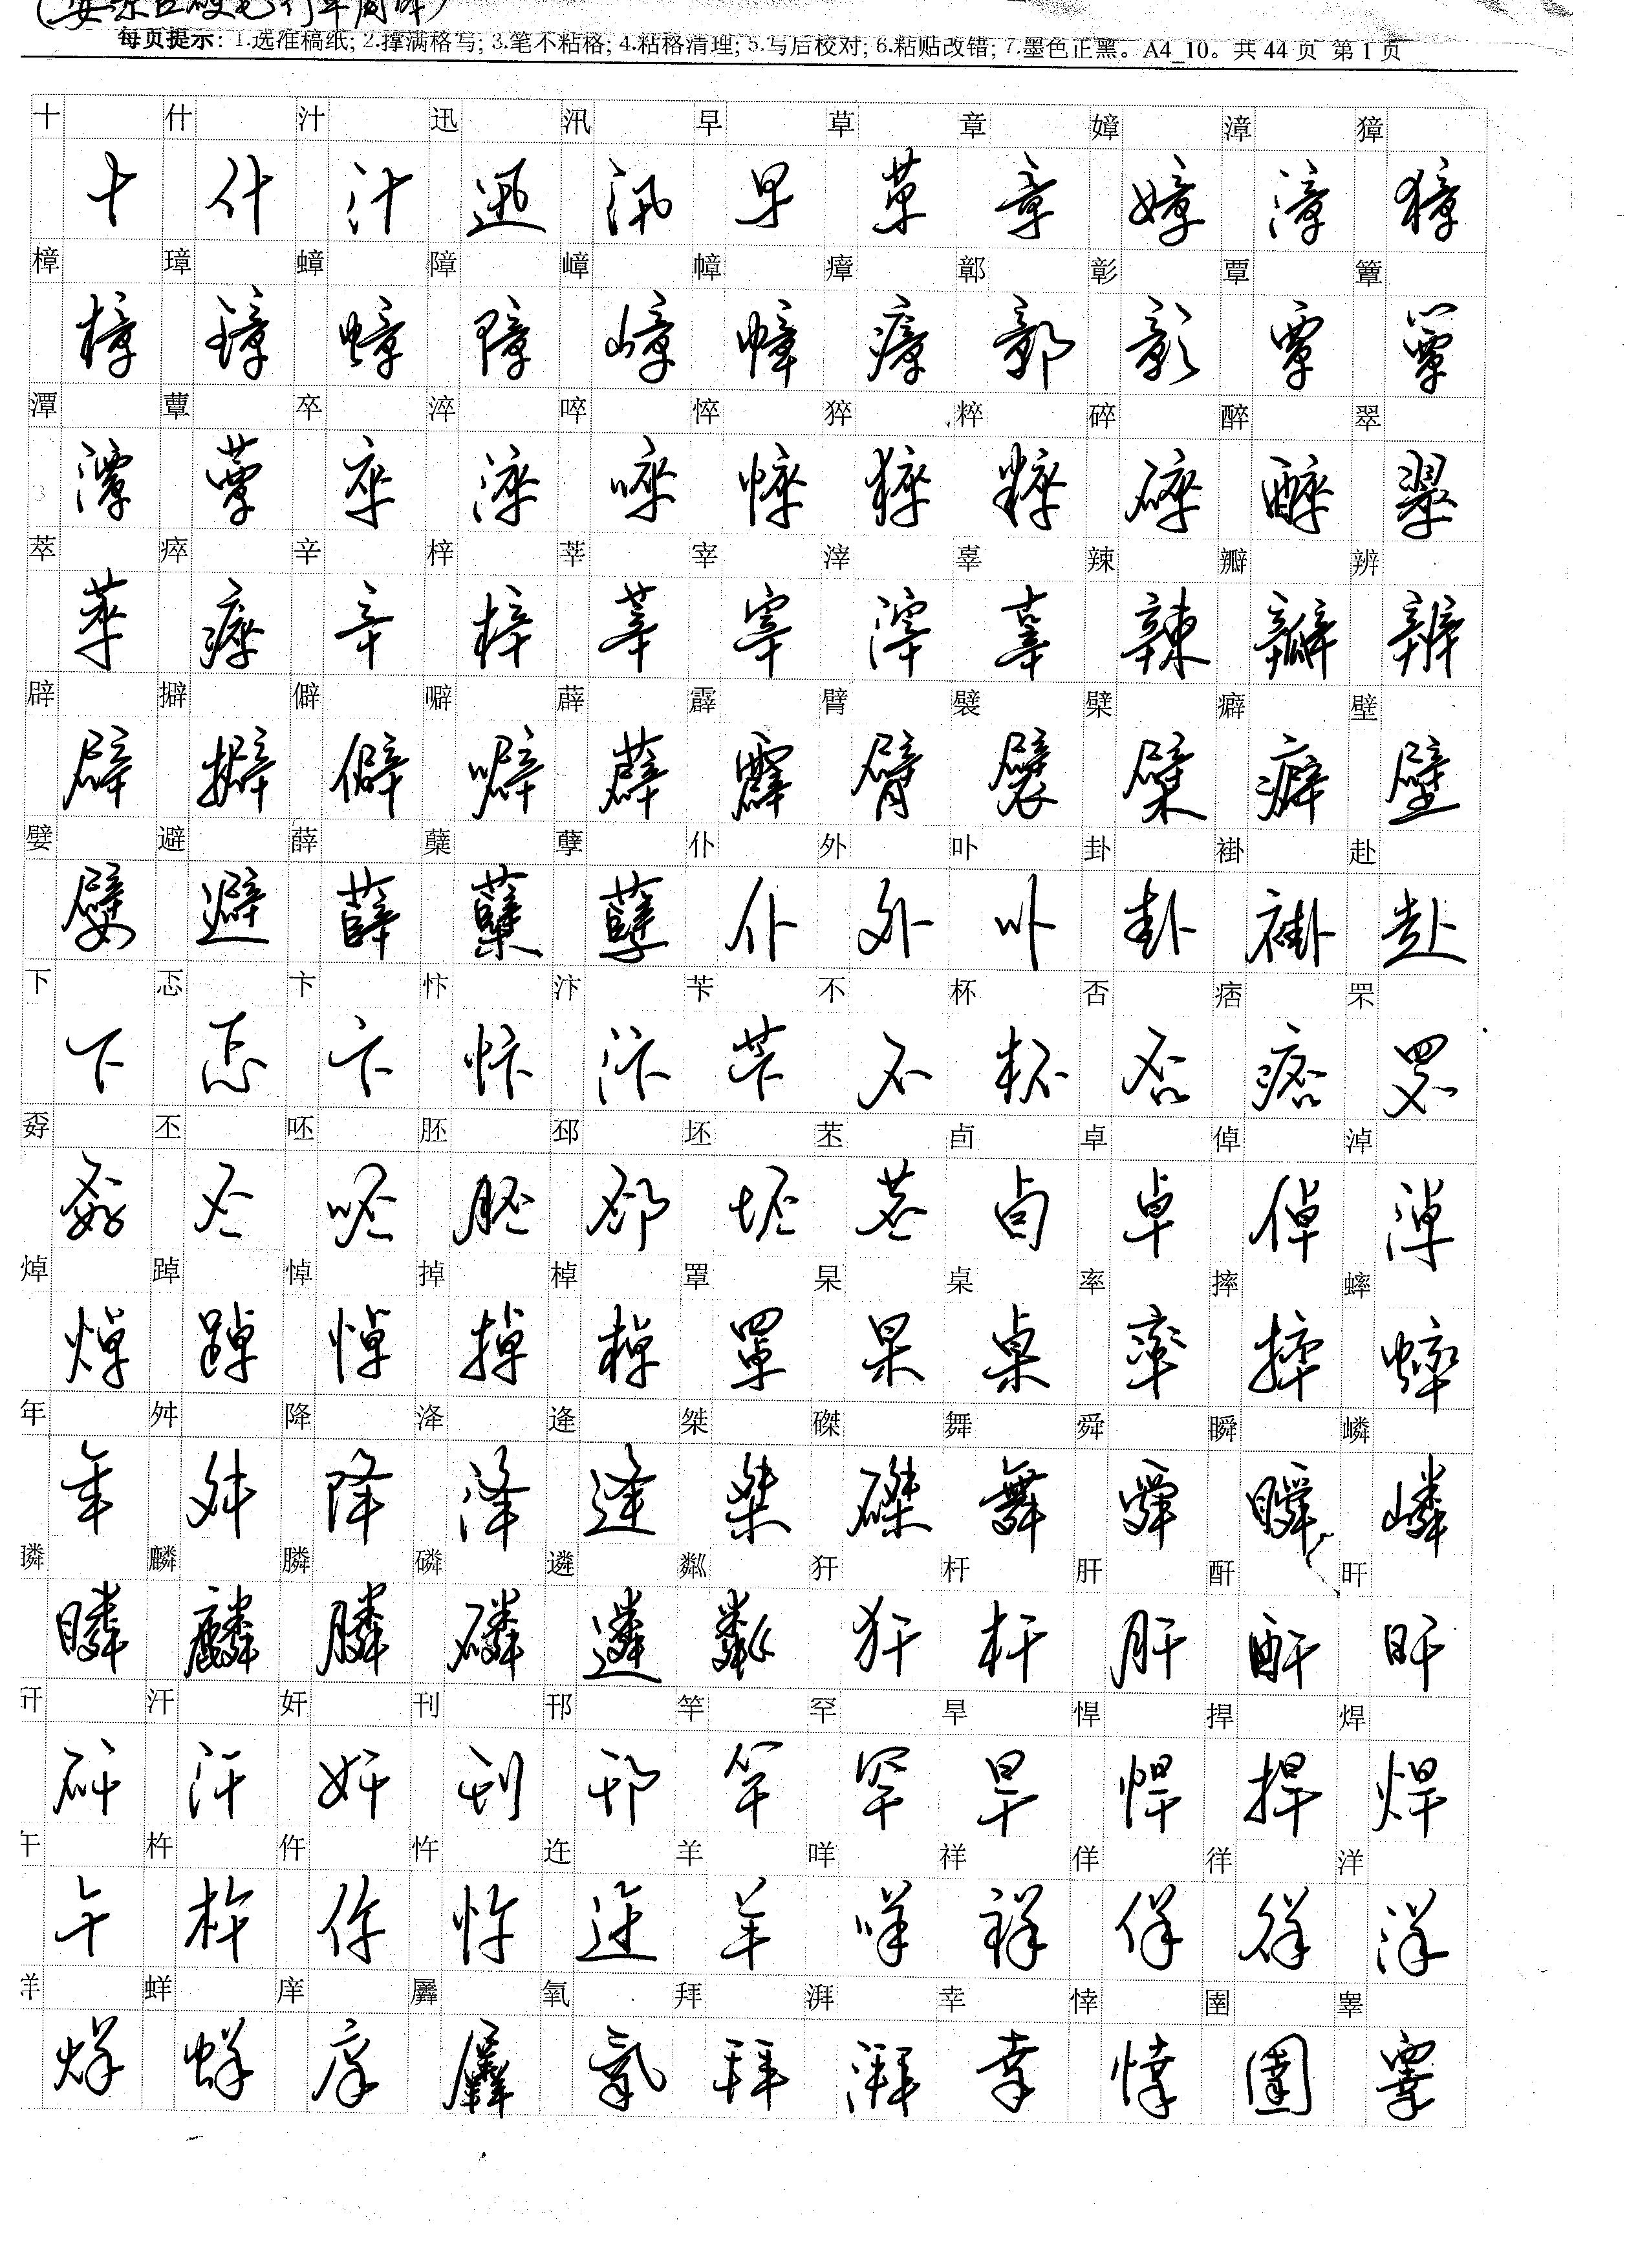 每页提示：1.选准稿纸; 2.撑满格写; 3.笔不粘格; 4.粘格清理; 5.写后校对; 6.粘贴改错; 7.墨色正黑。A4_10。共 44 页 第 1 页
十 什 汁 迅 汛 早 草 章 嫜 漳 獐
十 什 汁 迅 汛 早 草 章 嫜 漳 獐
樟 璋 蟑 障 嶂 幛 瘴 鄣 彰 覃 簟
樟 璋 蟑 障 嶂 幛 瘴 鄣 彰 覃 簟
潭 蕈 卒 淬 啐 悴 猝 粹 碎 醉 翠
潭 蕈 卒 淬 啐 悴 猝 粹 碎 醉 翠
萃 瘁 辛 梓 莘 宰 滓 辜 辣 瓣 辨
萃 瘁 辛 梓 莘 宰 滓 辜 辣 瓣 辨
辟 擗 僻 噼 薜 霹 臂 襞 檗 癖 壁
辟 擗 僻 噼 薜 霹 臂 襞 檗 癖 壁
嬖 避 薛 蘖 孽 仆 外 卟 卦 褂 赴
嬖 避 薛 蘖 孽 仆 外 卟 卦 褂 赴
下 忑 卞 忭 汴 苄 不 杯 否 痞 罘
下 忑 卞 忭 汴 苄 不 杯 否 痞 罘
孬 丕 呸 胚 邳 坯 苤 卣 卓 倬 淖
孬 丕 呸 胚 邳 坯 苤 卣 卓 倬 淖
焯 踔 悼 掉 棹 罩 杲 桌 率 摔 蟀
焯 踔 悼 掉 棹 罩 杲 桌 率 摔 蟀
年 舛 降 洚 逄 桀 磔 舞 舜 瞬 嶙
年 舛 降 洚 逄 桀 磔 舞 舜 瞬 嶙
麟 膦 磷 遴 粼 犴 杆 肝 酐 旰
麟 膦 磷 遴 粼 犴 杆 肝 酐 旰
汗 奸 刊 邗 竿 罕 旱 悍 捍 焊
矸 汗 奸 刊 邗 竿 罕 旱 悍 捍 焊
午 杵 仵 忤 迕 羊 咩 祥 佯 徉 洋
午 杵 仵 忤 迕 羊 咩 祥 佯 徉 洋
蛘 庠 羼 氧 拜 湃 幸 悻 圉 睾
烊 蛘 庠 羼 氧 拜 湃 幸 悻 圉 睾